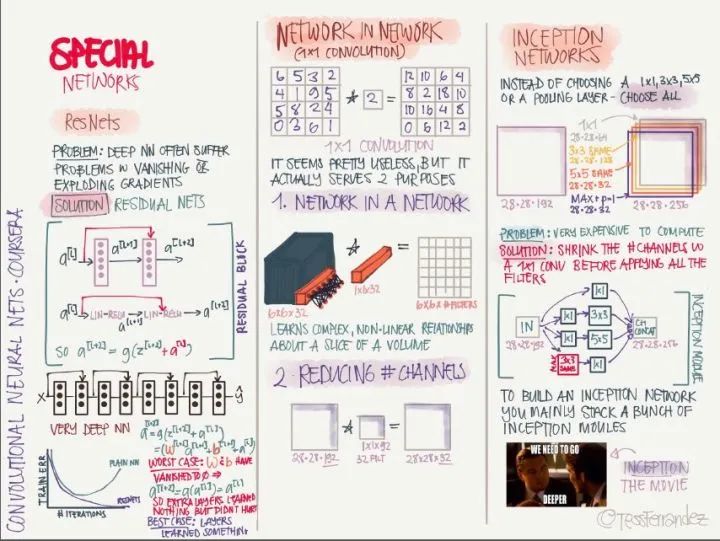 SPECIAL
NETWORKS
ResNets
PROBLEM: DEEP NN OFTEN SUFFER
PROBLEMS W VANISHING OR
EXPLODING GRADIENTS
SOLUTION RESIDUAL NETS
a[l] a[l+1] a[l+2]
a[l] LIN-RELU LIN-RELU a[l+2]
a[l+1]
SO a[l+2] = g(z[l+2] + a[l])
RESIDUAL BLOCK
X ŷ
VERY DEEP NN
a[l+2] = g(z[l+2] + a[l])
WORST CASE: W & b HAVE
VANISHED TO 0 ⇒
SO EXTRA LAYERS LEARNED
NOTHING BUT DIDN'T HURT
BEST CASE: LAYERS
LEARNED SOMETHING
TRAIN ERR
PLAIN NN
RESNETS
# ITERATIONS
CONVOLUTIONAL NEURAL NETS · COURSERA
NETWORK IN NETWORK
(1x1 CONVOLUTION)
6 5 3 2 12 10 6 4
4 1 9 5 * 2 = 8 2 18 10
5 8 2 4 10 16 4 8
0 3 6 1 0 6 12 2
1x1 CONVOLUTION
IT SEEMS PRETTY USELESS, BUT IT
ACTUALLY SERVES 2 PURPOSES
1. NETWORK IN A NETWORK
* =
6x6x32 1x1x32 6x6x#FILTERS
LEARNS COMPLEX, NON-LINEAR RELATIONSHIPS
ABOUT A SLICE OF A VOLUME
2. REDUCING # CHANNELS
* =
28·28·192 1x1x192 28x28x32
32 FILT
INCEPTION
NETWORKS
INSTEAD OF CHOOSING A 1x1, 3x3, 5x5
OR A POOLING LAYER - CHOOSE ALL
1x1
28·28·64
3x3 SAME
28·28·128
5x5 SAME
28·28·32
MAX + P=1
28·28·32
28·28·192 28·28·256
PROBLEM: VERY EXPENSIVE TO COMPUTE
SOLUTION: SHRINK THE #CHANNELS W
A 1x1 CONV BEFORE APPLYING ALL THE
FILTERS
1x1
IN 1x1 3x3 CH CONCAT
28·28·192 1x1 5x5 28·28·256
MAX 3x3 SAME 1x1
INCEPTION MODULE
TO BUILD AN INCEPTION NETWORK
YOU MAINLY STACK A BUNCH OF
INCEPTION MOULES
WE NEED TO GO
DEEPER
INCEPTION
THE MOVIE
©TessFerrandez